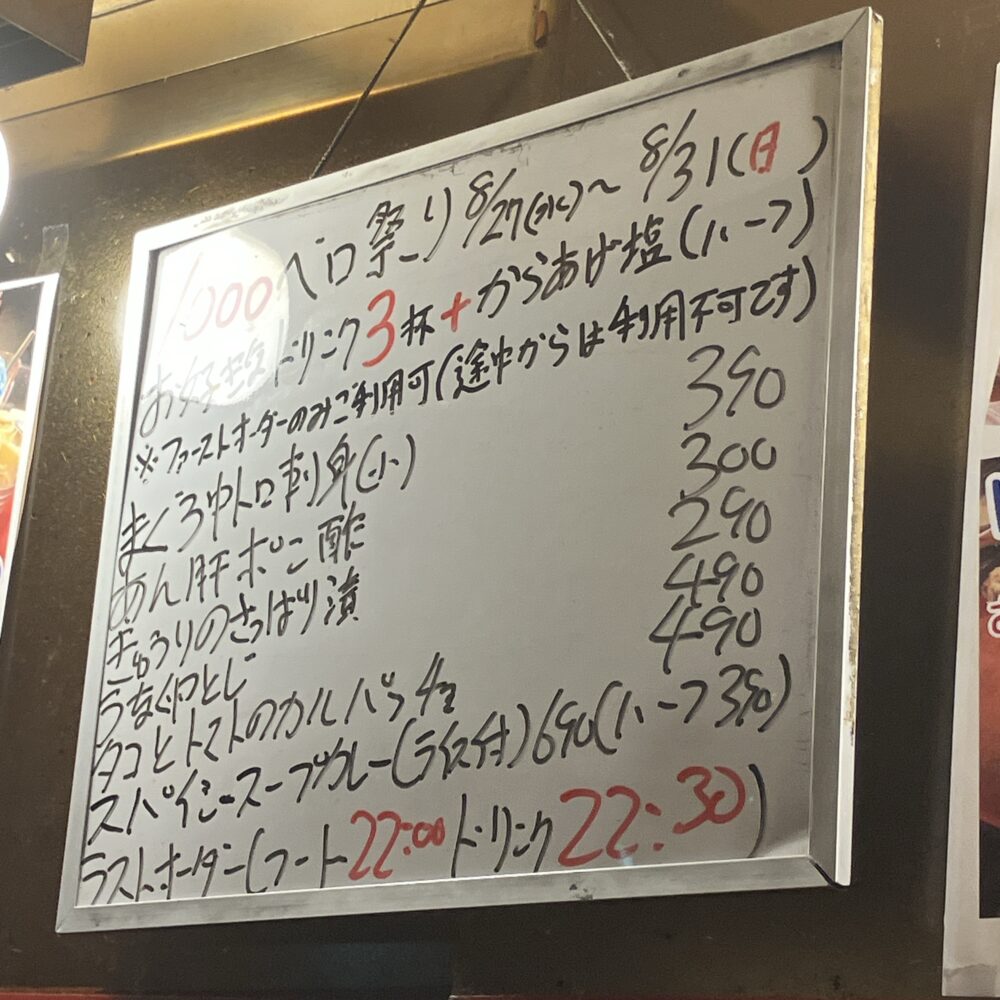 1000ベロ祭り 8/27(水)〜 8/31(日)
お好きなドリンク3杯+からあげ塩(ハーフ)
※ファーストオーダーのみご利用可(途中からは利用不可です)
まぐろ中トロ刺身(小) 390
あん肝ポン酢 300
きゅうりのさっぱり漬 290
うなぎ卵とじ 490
タコとトマトのカルパッチョ 490
スパイシースープカレー(ライス付)690(ハーフ390)
ラストオーダー(フード22:00 ドリンク22:30)